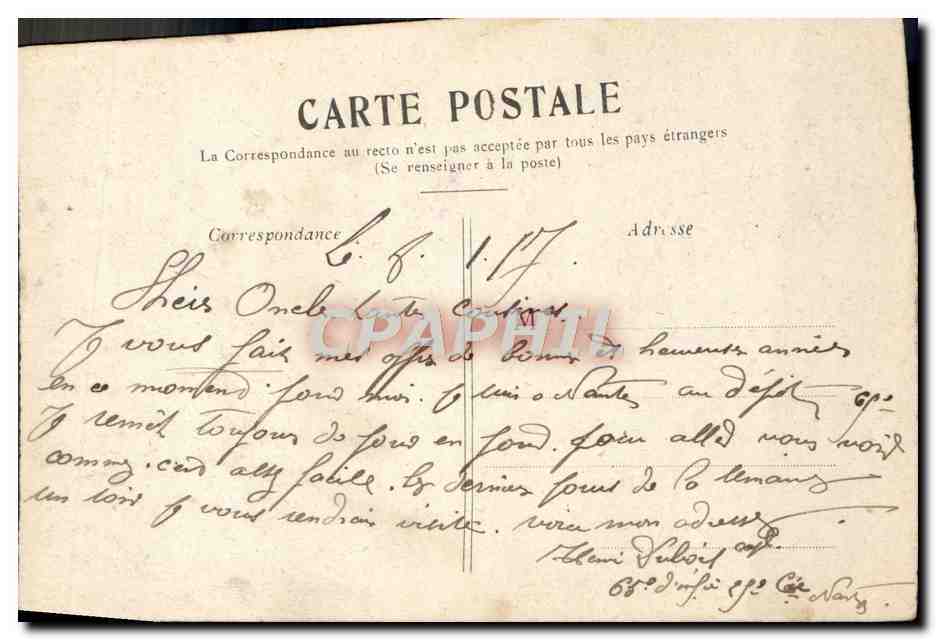 CARTE POSTALE
La Correspondance au recto n'est pas acceptée par tous les pays étrangers
(Se renseigner à la poste)
Correspondance
Adresse
Le. 8. 1. 17.
Cheis Oncle tante Cousines
CPAPHIL
M
Je vous fais mes offres de bonnes et heureuses années
en ce moment pour moi. je suis a Nantes au dépôt 65e
Je remêt toujours de jour en jour. pour alled vous voir
comme. c'est assez facile. les derniers jours de la semaine
un soir je vous rendrai visite. voici mon adresse
Henri Dubois
65e d'inf. Cie Nantes.